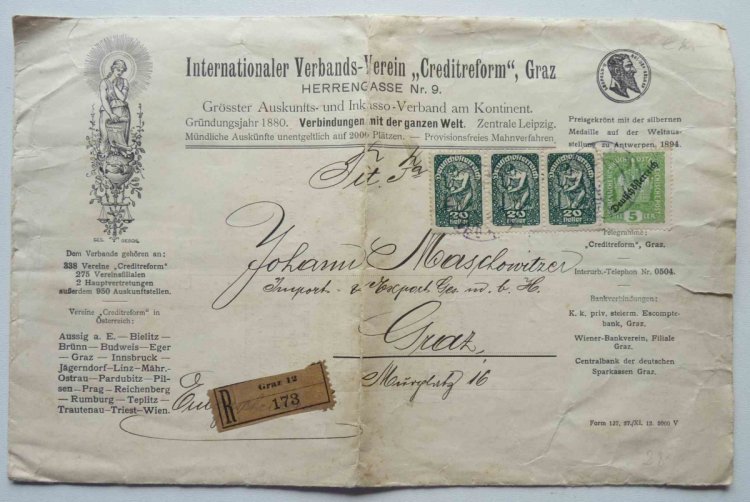 Internationaler Verbands-Verein „Creditreform", Graz
HERRENGASSE Nr. 9.
Grösster Auskunfts- und Inkasso-Verband am Kontinent.
Gründungsjahr 1880. Verbindungen mit der ganzen Welt. Zentrale Leipzig.
Mündliche Auskünfte unentgeltlich auf 2000 Plätzen. — Provisionsfreies Mahnverfahren
Preisgekrönt mit der silbernen
Medaille auf der Weltaus-
stellung zu Antwerpen, 1894.
Tit. Fa
Deutschösterreich
20
heller
Deutschösterreich
20
heller
Deutschösterreich
20
heller
Deutschösterreich
5
GES. GESCH.
Dem Verbande gehören an:
338 Vereine „Creditreform"
275 Vereinsfilialen
2 Hauptvertretungen
außerdem 950 Auskunftstellen.
Vereine „Creditreform" in
Österreich:
Aussig a. E. — Bielitz —
Brünn — Budweis — Eger
— Graz — Innsbruck —
Jägerndorf — Linz — Mähr.-
Ostrau — Pardubitz — Pil-
sen — Prag — Reichenberg
— Rumburg — Teplitz —
Trautenau — Triest — Wien.
Johann Maschowitzer
Import- & Export Ges. m. b. H.
Graz
Murplatz 16
Telegramme:
„Creditreform", Graz.
Interurb.-Telephon Nr. 0504.
Bankverbindungen:
K. k. priv. steierm. Escompte-
bank, Graz.
Wiener-Bankverein, Filiale
Graz.
Centralbank der deutschen
Sparkassen Graz.
R
Graz 12
173
Form 127, 27./XI. 12. 5000 V